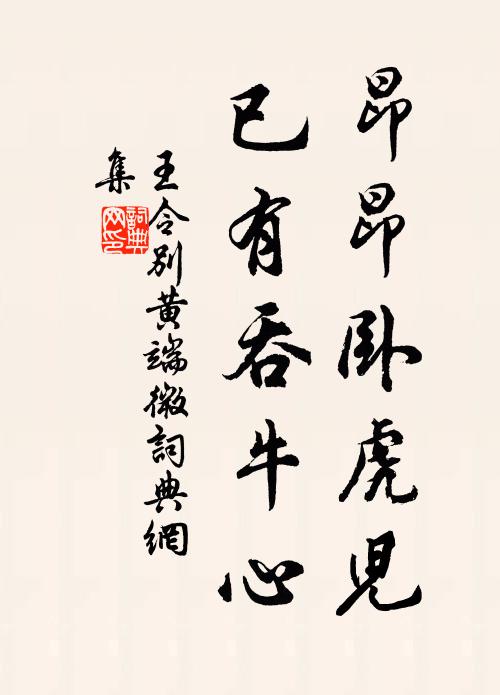 昂昂卧虎児
已有吞牛心
王令別黄端微詞典網
集
詞典網印